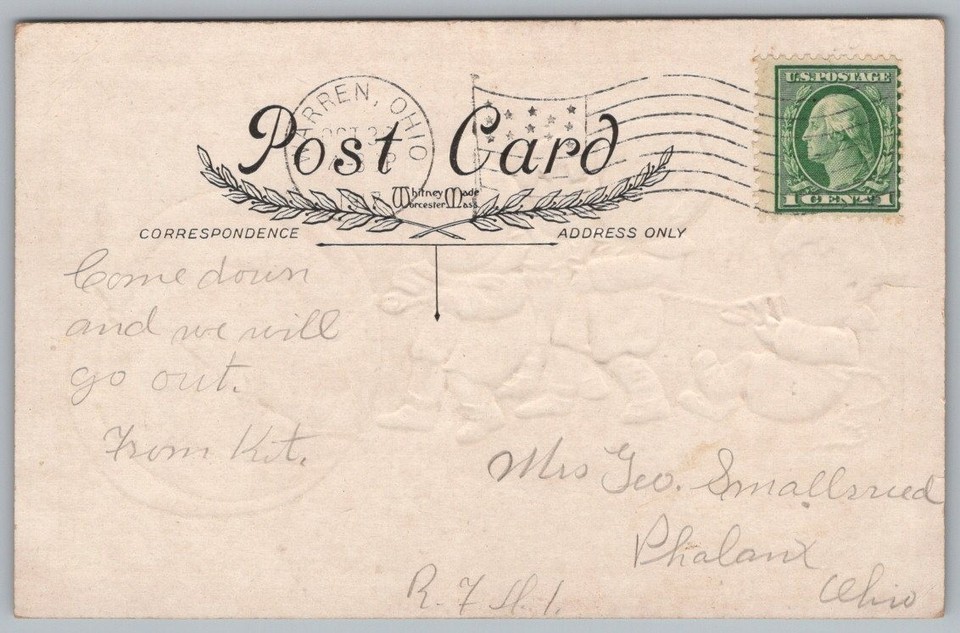 WARREN, OHIO
OCT 3
U.S. POSTAGE
1 CENT 1
Post Card
Whitney Made
Worcester Mass.
CORRESPONDENCE
ADDRESS ONLY
Come down
and we will
go out.
From Kit.
Mrs Geo. Smallsreed
Phalanx
Ohio
R. F. D. 1.